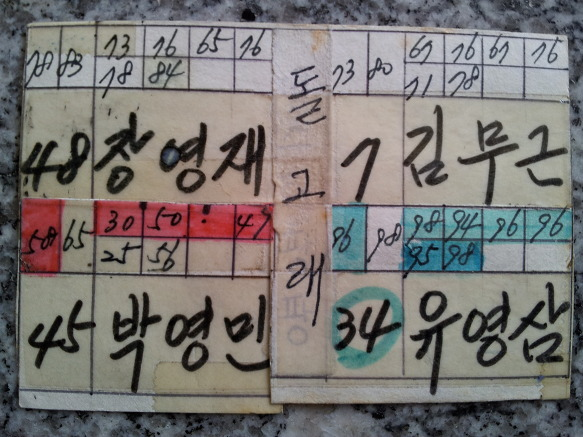 78 83 73 76 65 76
78 84
48 장영재
58 65 30 50 47
25 56
45 박영민
돌고래
73 80 67 76 67 76
71 78
7 김무근
96 98 98 94 96 96
95 98
34 유영삼